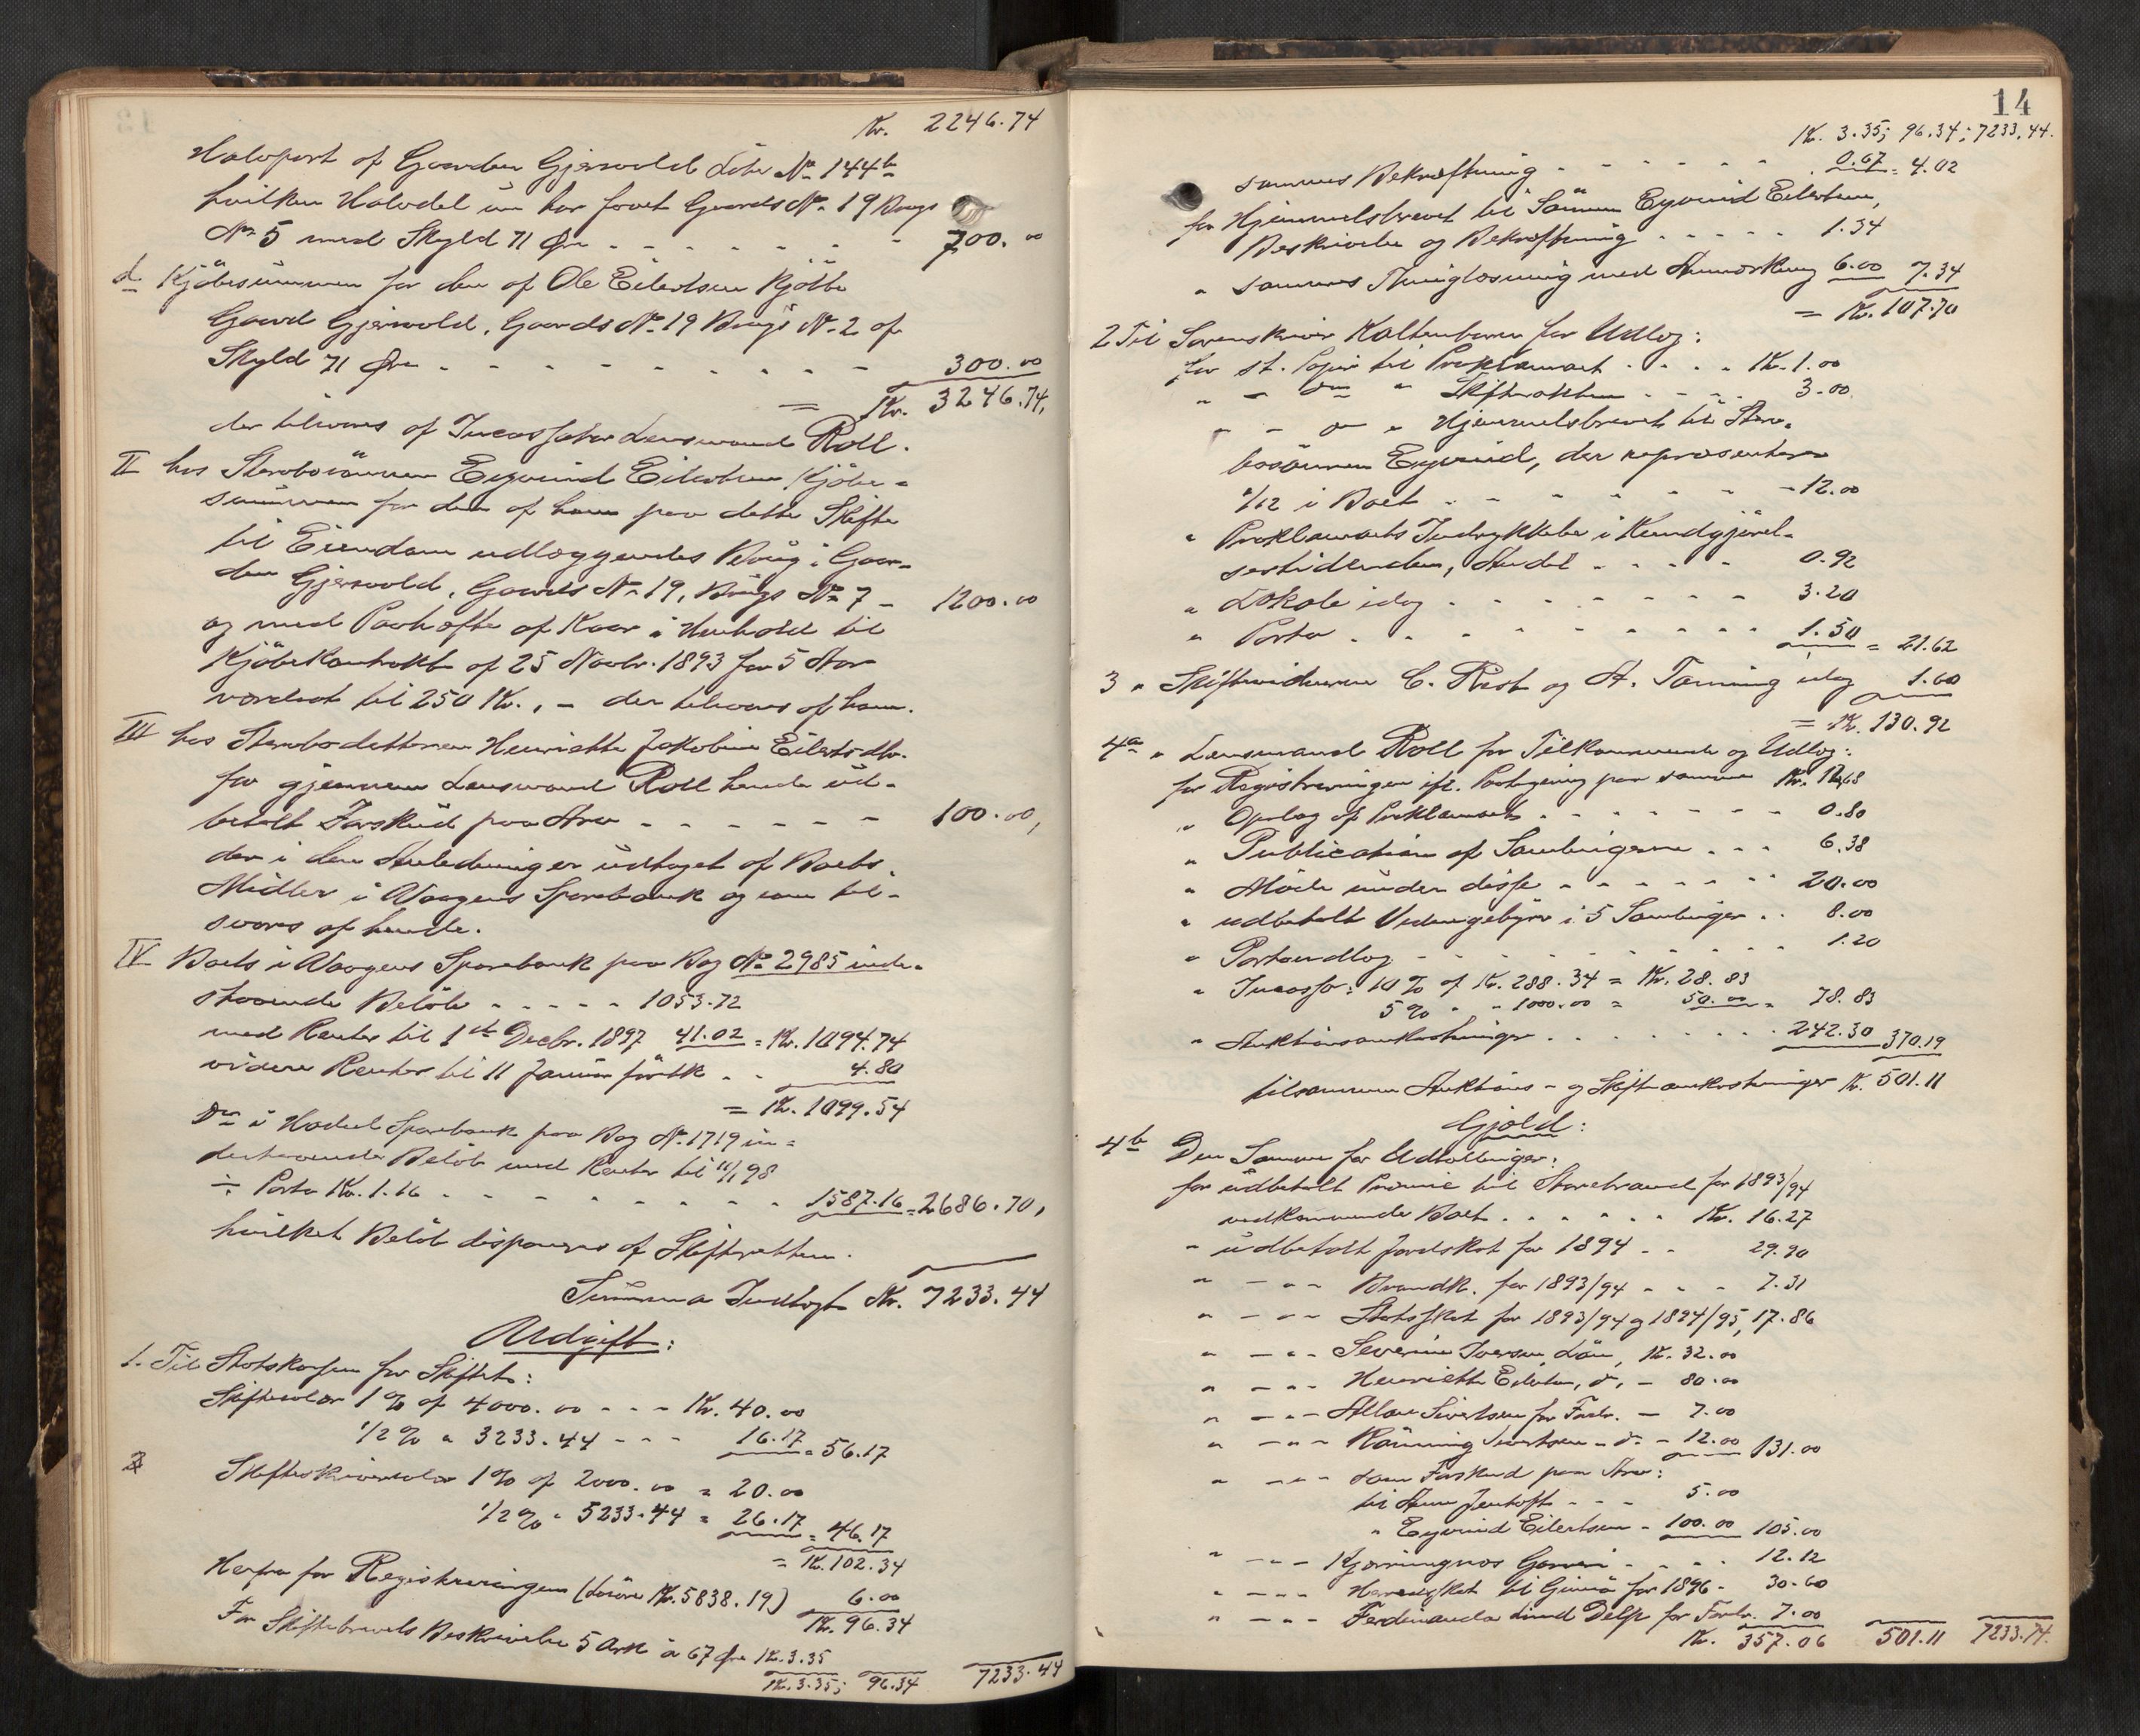 Kr. 2246.74
Halvpart af Gaarden Gjersvold Løbe No 144b
hvilken Halvdel nu har faaet Gaards No 19 Brugs
No 5 med Skyld 71 Øre - - - - - - - 700.00
d. Kjöbesummen for den af Ole Eilertsen kjöbte
Gaard Gjersvold, Gaards No 19 Brugs No 2 af
Skyld 71 Øre - - - - - - - - - 300.00
= Kr. 3246.74,
der tilsvares af Incassator Lensmand Roll.
II hos Stervbosönnen Eyvind Eilertsen Kjöbe-
summen for den af ham paa dette Skifte
til Eiendom udlæggendes Brug i Gaar-
den Gjersvold, Gaards No 19, Brugs No 7 - 1200.00
og med Paahefte af Kaar i Henhold til
Kjöbekontrakt af 25 Novbr. 1893 for 5 Aar
værdsat til 250 Kr., - der tilsvares af ham.
III hos Stervbodatteren Henriette Jakobine Eilertsdtr.
for gjennem Lensmand Roll hende ud-
betalt Forskud paa Arv - - - - - - 100.00,
der i den Anledning er udtaget af Boets
Midler i Vaagens Sparebank og som til-
svares af hende.
IV Boets i Vaagens Sparebank paa Bog No 2985 inde-
staaende Beløb - - - - - 1053.72
med Renter til 1ste Decbr. 1897 41.02 = Kr. 1094.74
videre Renter til 11 Januar förstk. - - 4.80
= Kr. 1099.54
Do i Hadsel Sparebank paa Bog No 1719 in-
destaaende Beløb med Renter til 11/1 98
÷ Porto Kr. 1.16 - - - - - - - - 1587.16 = 2686.70,
hvilket Beløb disponeres af Skifteretten.
Summa Indtægt Kr. 7233.44
Udgift:
1. Til Statskassen for Skiftet:
Skiftesalær 1 % af 4000.00 - - - Kr. 40.00
1/2 % " 3233.44 - - - 16.17 = 56.17
Skifteskriversalær 1% af 2000.00 = 20.00
1/2 % " 5233.44 = 26.17 = 46.17
= Kr. 102.34
Herfra for Registreringen (Løsöre Kr. 5838.19) 6.00
Kr. 96.34
For Skiftebrevets Beskrivelse 5 Ark à 67 Øre Kr. 3.35
Kr. 3.35; 96.34 7233.44
14
Kr. 3.35; 96.34; 7233.44.
sammes Bekræftning - - - - - - 0.67 = 4.02
for Hjemmelsbrevet til Sönnen Eyvind Eilertsen,
Beskrivelse og Bekræftning - - - - - 1.34
" sammes Thinglæsning med Anmærkning 6.00 7.34
= Kr. 107.70
2 Til Sorenskriver Kaltenborn for Udlæg:
for st. Papir til Proklamaet - - - - Kr. 1.00
" - do " Skifteakten - - - - 3.00
" - do " Hjemmelsbrevet til Sterv-
bosönnen Eyvind, der repræsenterer
1/12 i Boet - - - - - - - - 12.00
" Proklamaets Indrykkelse i Kundgjörel-
sestidenden, Andel - - - - - 0.92
" Lokale idag - - - - - - - - 3.20
" Porto - - - - - - - - - 1.50 = 21.62
3 " Skiftevidnerne C. Rist og A. Tanning idag 1.60
= Kr. 130.92
4a " Lensmand Roll for Tilkommende og Udlæg:
for Registreringen ifl. Paategning paa samme Kr. 12.68
" Opslag af Proklamaet - - - - - - - 0.80
" Publication af Samlingerne - - - 6.38
" Möde under disse - - - - - - - 20.00
" udbetalt Vidnegebyr i 5 Samlinger - - 8.00
" Portoudlæg - - - - - - - - - 1.20
" Incasso: 10 % af Kr. 288.34 = Kr. 28.83
5% " " 1000.00 = 50.00 = 78.83
" Auktionsomkostninger - - - - - - - 242.30 370.19
tilsammen Auktions- og Skifteomkostninger Kr. 501.11
Gjæld:
4b Den Samme for Udtællinger:
for udbetalt Præmie til Storebrand for 1893/94
vedkommende Boet - - - - - - Kr. 16.27
" udbetalt Jordskat for 1894 - - 29.90
" - " - Brandk. for 1893/94 - - - 7.31
" - " - Statsskat for 1893/94 og 1894/95, 17.86
" - " - Severine Iversen, Lön, Kr. 32.00
" - " - Henriette Eilertsen, do, - 80.00
" - " - Sivertsen for Forbr. - 7.00
" - " - Rönning Sivertsen - do - 12.00 131.00
" - " - som Forskud paa Arv:
til Anne Jentoft - - - 5.00
" Eyvind Eilertsen - 100.00 105.00
" - " - Kjerringnæs Garveri - - - - 12.12
" - " - Herredskat til Gimsö for 1896 - 30.60
" - " - Ferdinanda for Forbr. 7.00
Kr. 357.06 501.11 7233.74.